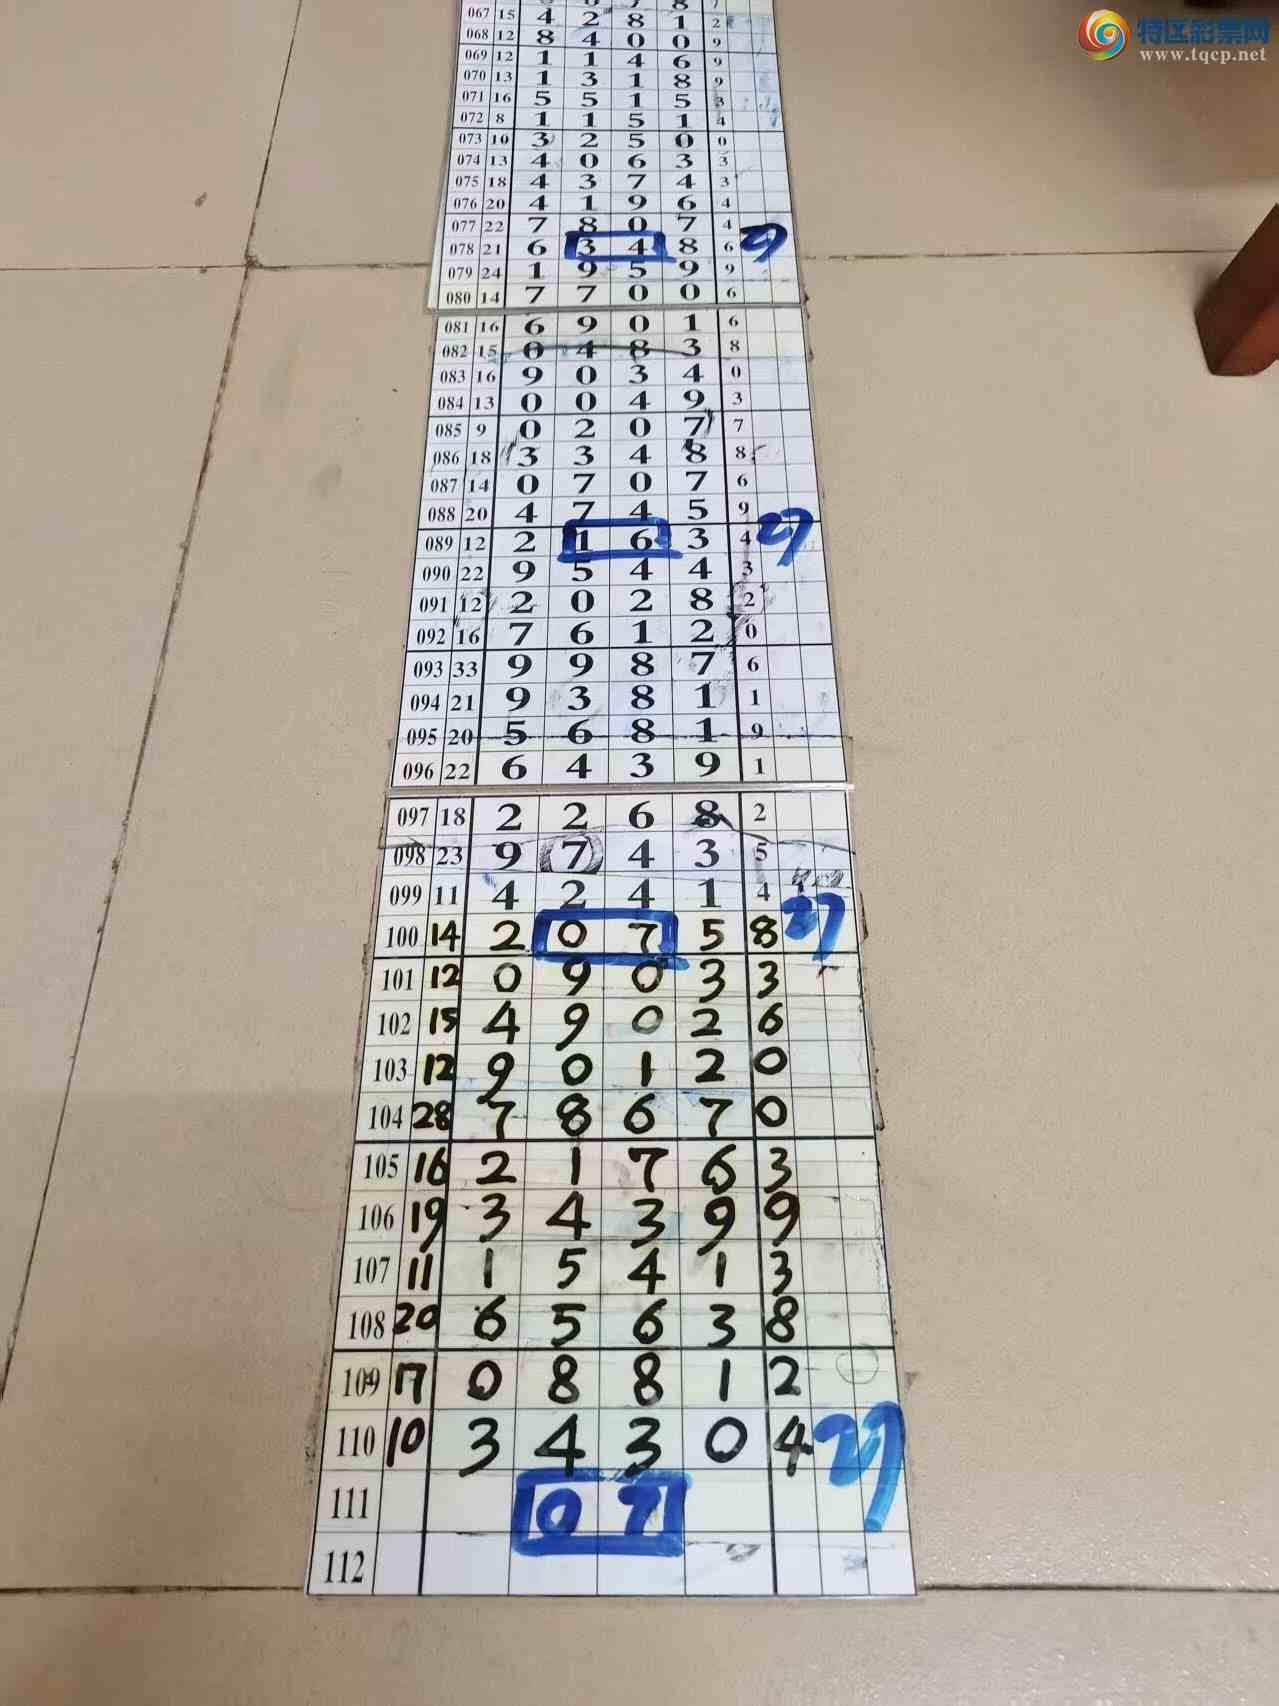 特区彩票网
www.tqcp.net
067 15 4 2 8 1 2
068 12 8 4 0 0 9
069 12 1 1 4 6 9
070 13 1 3 1 8 9
071 16 5 5 1 5 3
072 8 1 1 5 1 4
073 10 3 2 5 0 0
074 13 4 0 6 3 3
075 18 4 3 7 4 3
076 20 4 1 9 6 4
077 22 7 8 0 7 4
078 21 6 3 4 8 6 27
079 24 1 9 5 9 9
080 14 7 7 0 0 6
081 16 6 9 0 1 6
082 15 0 4 8 3 8
083 16 9 0 3 4 0
084 13 0 0 4 9 3
085 9 0 2 0 7 7
086 18 3 3 4 8 8
087 14 0 7 0 7 6
088 20 4 7 4 5 9
089 12 2 1 6 3 4 27
090 22 9 5 4 4 3
091 12 2 0 2 8 2
092 16 7 6 1 2 0
093 33 9 9 8 7 6
094 21 9 3 8 1 1
095 20 5 6 8 1 9
096 22 6 4 3 9 1
097 18 2 2 6 8 2
098 23 9 7 4 3 5
099 11 4 2 4 1 4
100 14 2 0 7 5 8 27
101 12 0 9 0 3 3
102 15 4 9 0 2 6
103 12 9 0 1 2 0
104 28 7 8 6 7 0
105 16 2 1 7 6 3
106 19 3 4 3 9 9
107 11 1 5 4 1 3
108 20 6 5 6 3 8
109 17 0 8 8 1 2
110 10 3 4 3 0 4 27
111 0 7
112